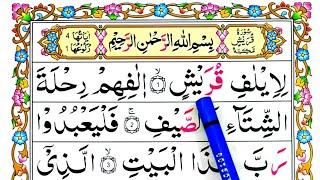 سورة قريش مكية
بسم الله الرحمن الرحيم
اٰياتها ٤ ركوعها ١
لِاِيْلٰفِ قُرَيْشٍ ۝١ اٖلٰفِهِمْ رِحْلَةَ
الشِّتَآءِ وَالصَّيْفِ ۝٢ فَلْيَعْبُدُوْا
رَبَّ هٰذَا الْبَيْتِ ۝٣ الَّذِيْٓ